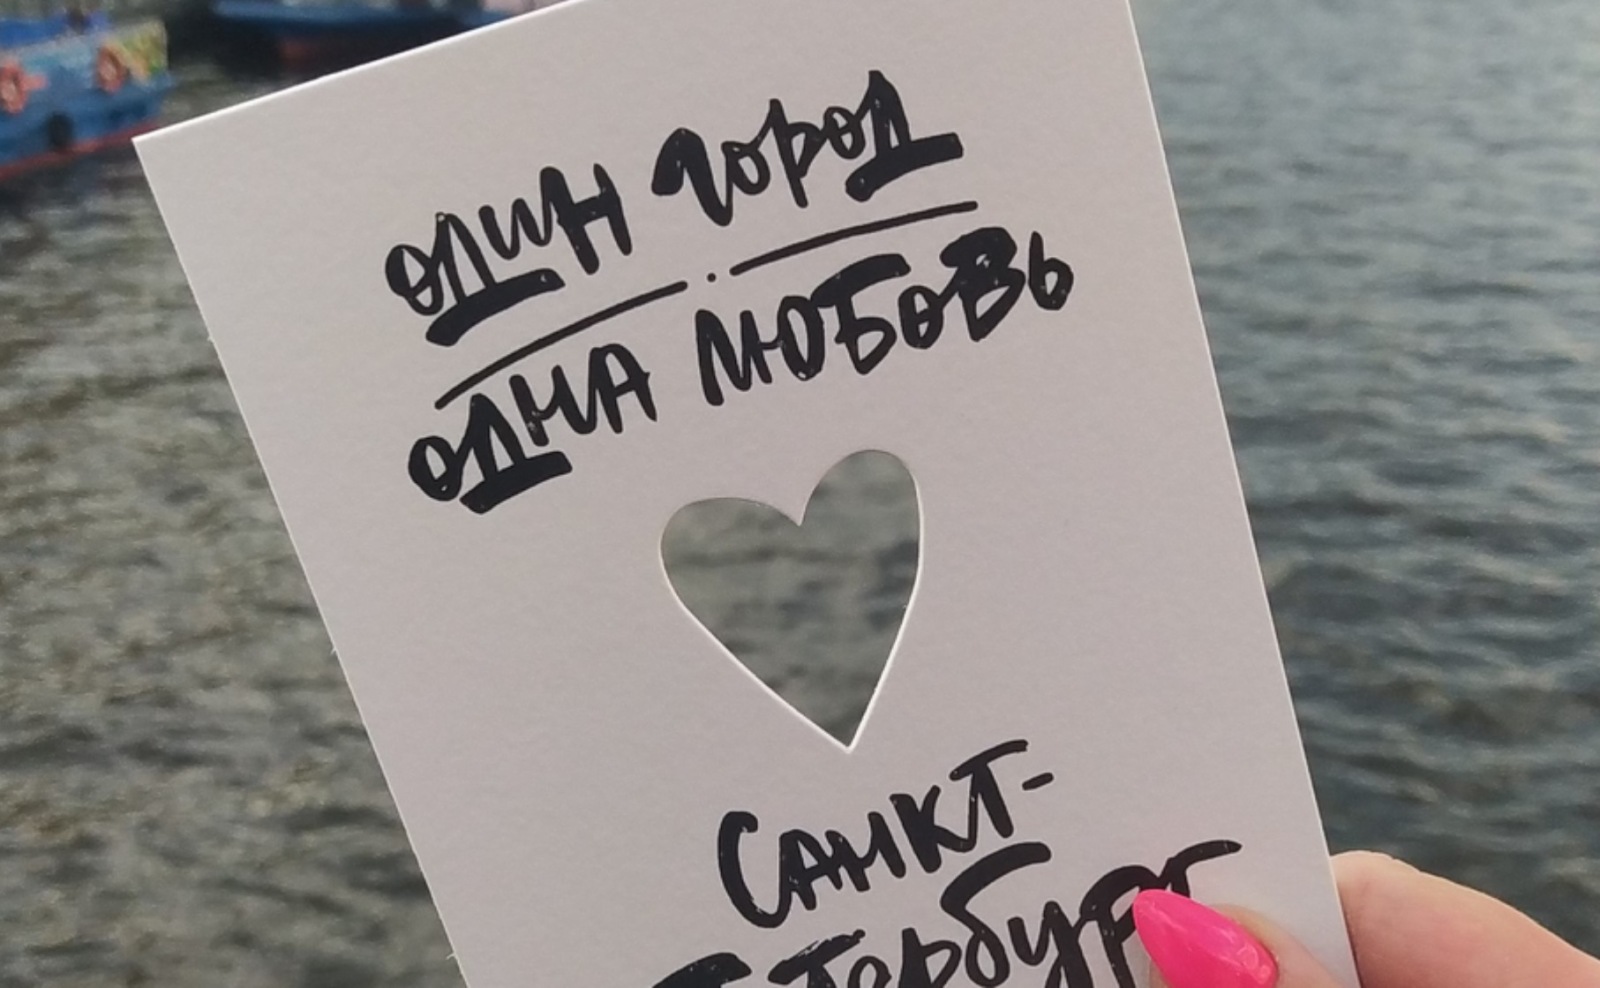 один город
одна любовь
Санкт-
Петербург